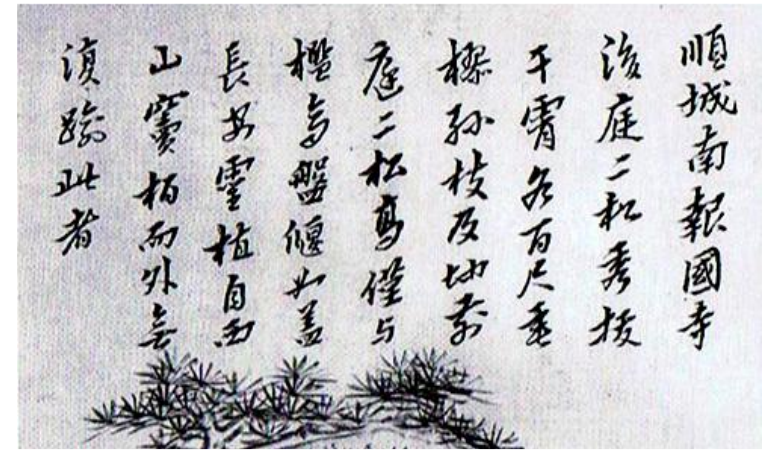 順城南報國寺
後庭二松秀拔
干霄各百尺垂
樛孫枝及地前
庭二松高僅与
檻齊盤偃如盖
長安靈植自西
山竇柏而外無
復踰此者